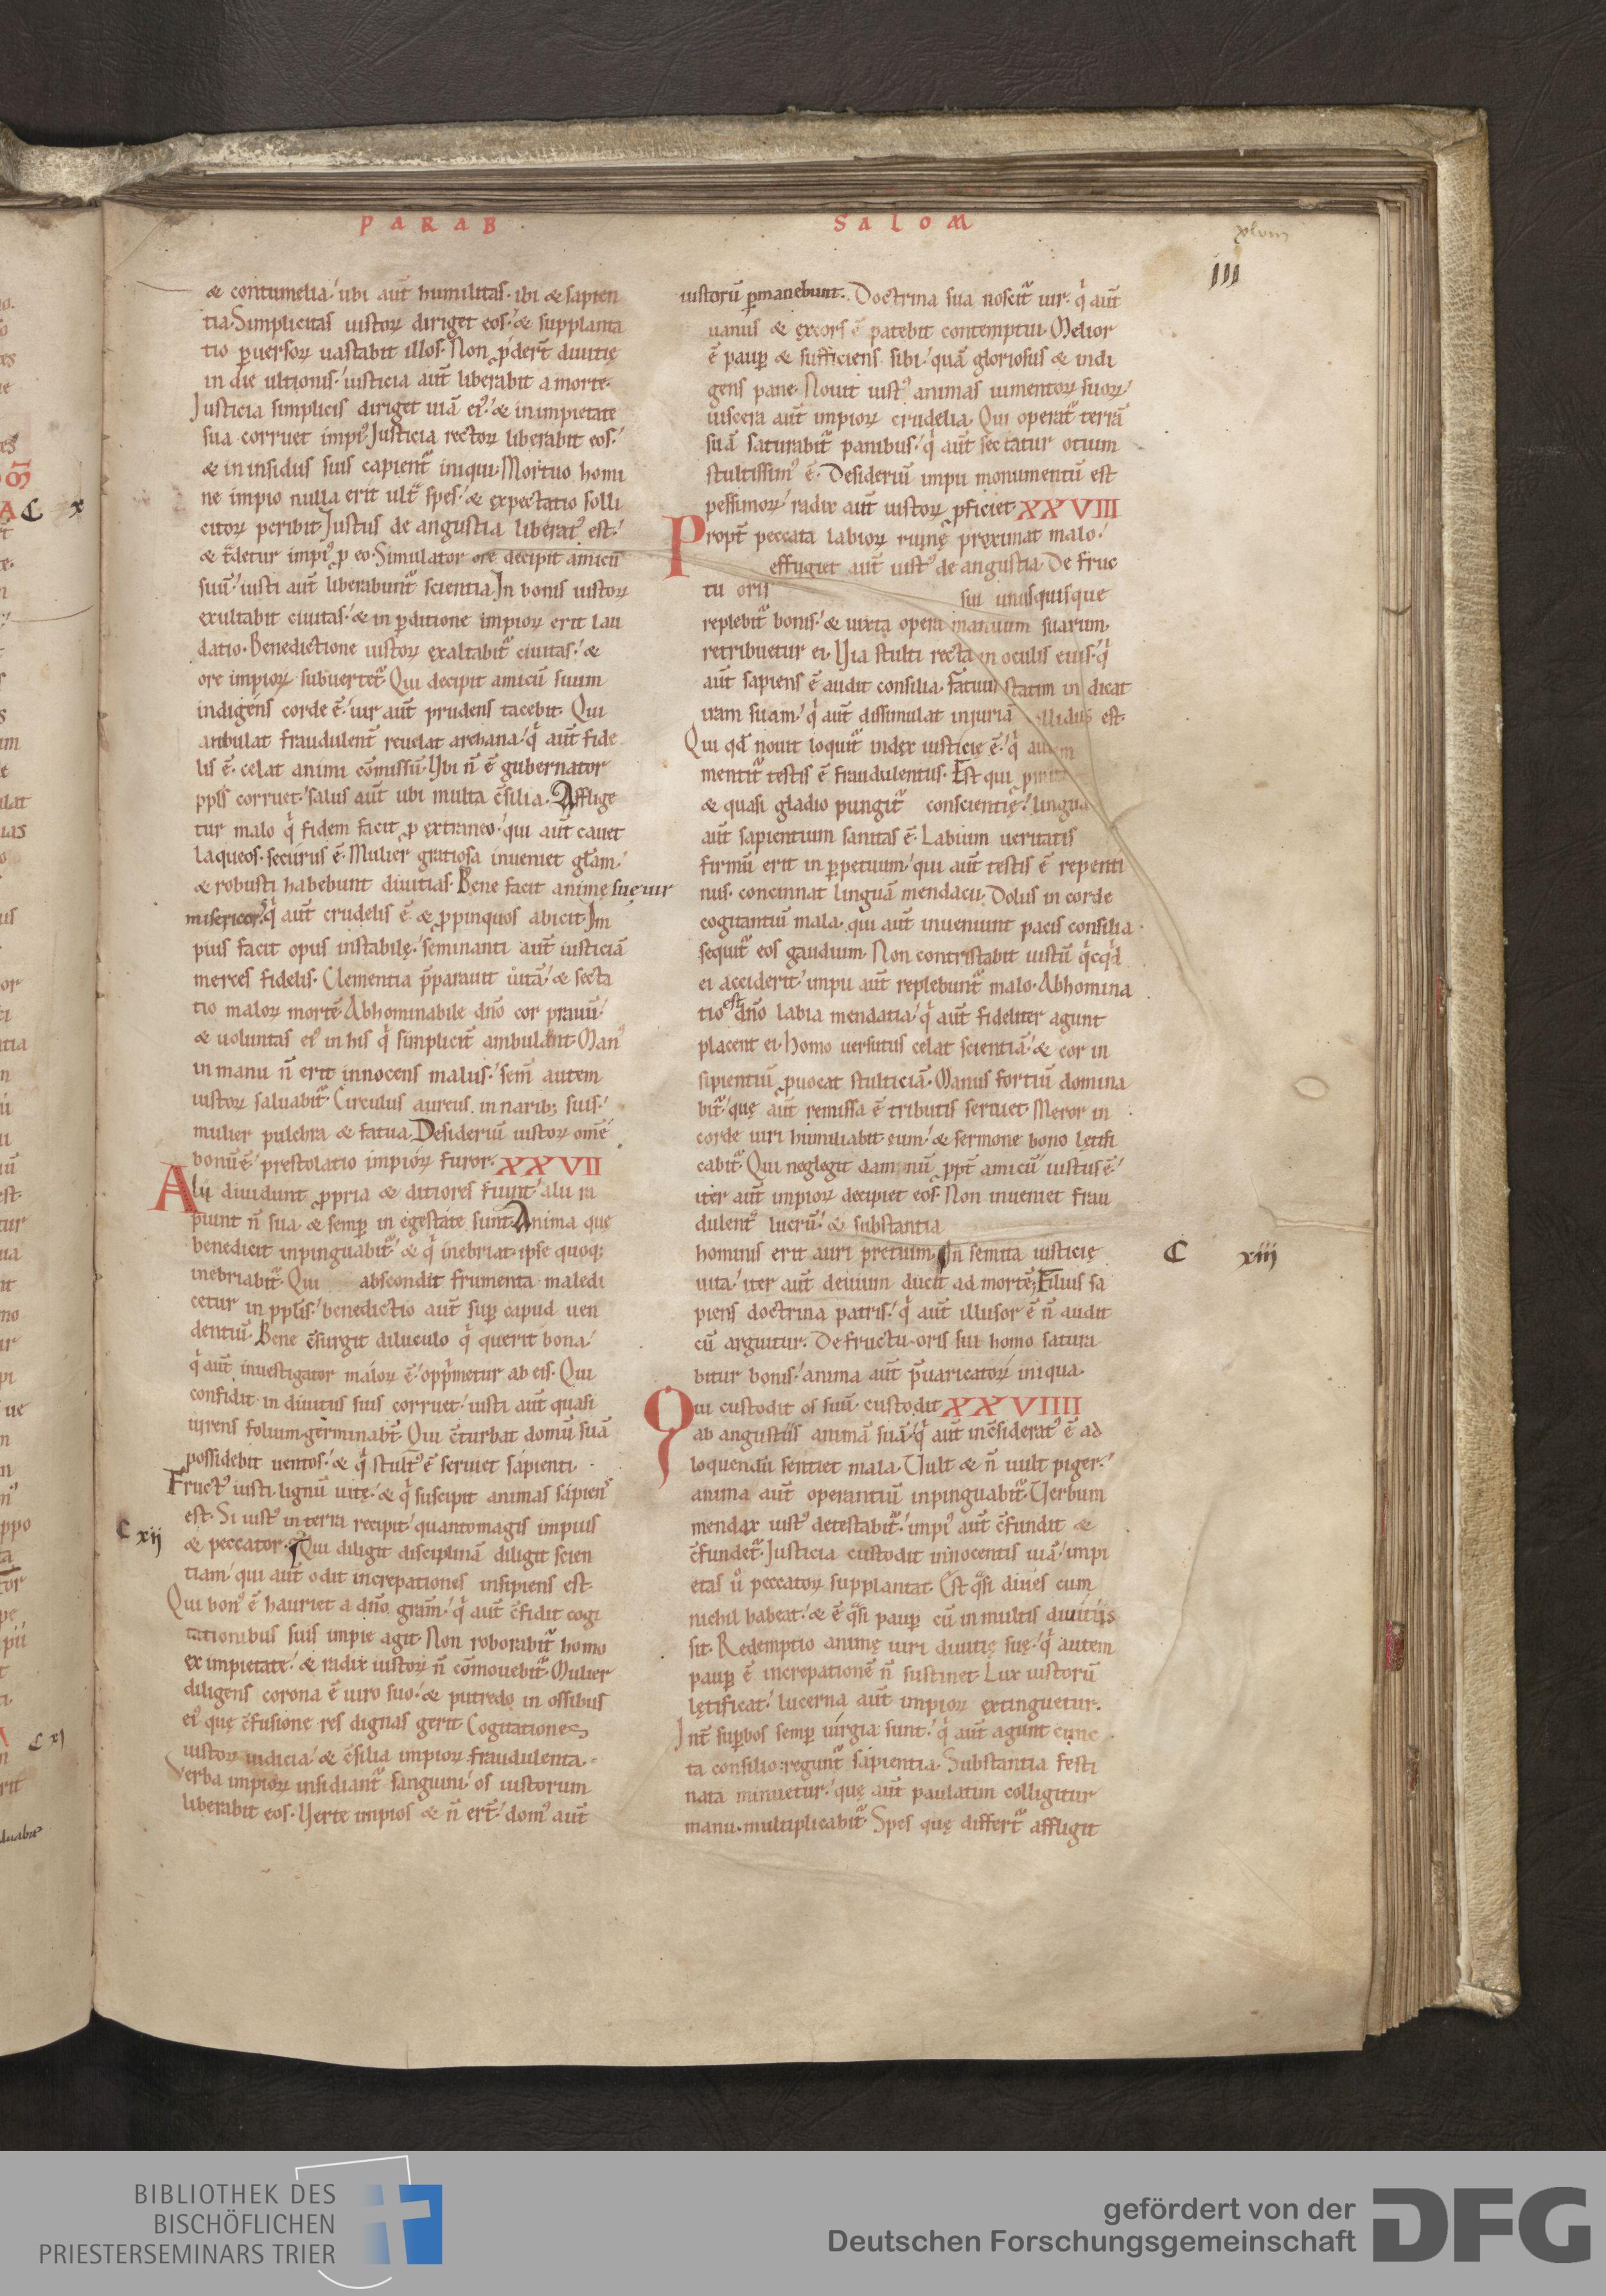 PARAB
SALOM
xlviii
III
& contumelia.' ubi aut̄ humilitas. ibi & sapien
tia. Simplicitas iustoꝝ diriget eos.' & supplanta
tio ꝑuersoꝝ uastabit illos. Non ꝓdert̄ diuitię
in die ultionis.' iusticia aut̄ liberabit a morte.
Iusticia simplicis diriget uiā ei'.' & in impietate
sua corruet impi'. Iusticia rectoꝝ liberabit eos.'
& in insidiis suis capient̄ iniqui. Mortuo homi
ne impio nulla erit ult̄ spes.' & expectatio solli
citoꝝ peribit. Iustus de angustia liberat' est.'
& t̄detur impi' ꝓ eo. Simulator ore decipit amicū
suū.' iusti aut̄ liberabunt̄ scientia. In bonis iustoꝝ
exultabit ciuitas.' & in ꝑditione impioꝝ erit lau
datio. Benedictione iustoꝝ exaltabit̄ ciuitas.' &
ore impioꝝ subuertet̄. Qui decipit amicū suum
indigens corde ē.' uir aut̄ prudens tacebit. Qui
ambulat fraudulent̄ reuelat archana.' q̇ aut̄ fide
lis ē. celat animi cōmissū. Ubi n̄ ē gubernator
ppl̄s corruet.' salus aut̄ ubi multa c̄silia. Afflige
tur malo q̇ fidem facit ꝓ extraneo.' qui aut̄ cauet
laqueos. securus ē. Mulier gratiosa inueniet gl̄am.'
& robusti habebunt diuitias. Bene facit animę suę uir
misericor' q̇ aut̄ crudelis ē & ꝓpinquos abicit. Im
pius facit opus instabilę.' seminanti aut̄ iusticiā
merces fidelis. Clementia p̄parauit uitā.' & secta
tio maloꝝ mortē. Abhominabile dn̄o cor prauū.'
& uoluntas ei' in his q̇ simplicit̄ ambulant. Man'
in manu n̄ erit innocens malus.' sem̄ autem
iustoꝝ saluabit̄. Circulus aureus in narib; suis.'
mulier pulchra & fatua. Desideriū iustoꝝ om̄e
bonū ē.' prestolatio impioꝝ furor. XXVII
Alii diuidunt ꝓpria & ditiores fiunt.' alii ra
piunt n̄ sua & semꝑ in egestate sunt. Anima que
benedicit inpinguabit̄.' & q̇ inebriat. ipse quoq;
inebriabit̄. Qui abscondit frumenta maledi
cetur in ppl̄is.' benedictio aut̄ suꝑ capud uen
dentiū. Bene c̄surgit diluculo q̇ querit bona.'
q̇ aut̄ inuestigator maloꝝ ē.' opp̄metur ab eis. Qui
confidit in diuitiis suis corruet.' iusti aut̄ quasi
uirens folium. germinabt̄. Qui c̄turbat domū suā
possidebit uentos.' & q̇ stult' ē seruiet sapienti.
Fruct' iusti. lignū uitę.' & q̇ suscipit animas sapien'
est. Si iust' in terra recipit.' quantomagis impius
C xij
& peccator. Qui diligit disciplinā diligit scien
tiam.' qui aut̄ odit increpationes insipiens est.
Qui bon' ē hauriet a dn̄o gr̄am.' q̇ aut̄ c̄fidit cogi
tationibus suis impie agit. Non roborabit̄ homo
ex impietate.' & radix iustoꝝ n̄ cōmouebit̄. Mulier
diligens corona ē uiro suo.' & putredo in ossibus
ei' quę c̄fusione res dignas gerit. Cogitationes
iustoꝝ iudicia.' & c̄silia impioꝝ fraudulenta.
Verba impioꝝ insidiant̄ sanguini.' os iustorum
liberabit eos. Uerte impios & n̄ ert̄.' dom' aut̄
iustorū ꝑmanebunt. Doctrina sua noscit̄ uir. q̇ aut̄
uanus & excors ē patebit contemptui. Melior
ē pauꝑ & sufficiens sibi.' quā gloriosus & indi
gens pane. Nouit iust' animas iumentoꝝ suoꝝ.'
uiscera aut̄ impioꝝ crudelia. Qui operat̄ terrā
suā saturabit̄ panibus.' q̇ aut̄ sectatur otium
stultissim' ē. Desideriū impii monumentū est
pessimoꝝ.' radix aut̄ iustoꝝ ꝓficiet. XXVIII
Propt̄ peccata labioꝝ ruinę proximat malo.'
effugiet aut̄ iust' de angustia. De fruc
tu oris sui unusquisque
replebit̄ bonis.' & iuxta opera manuum suarum.
retribuetur ei. Uia stulti recta in oculis eius.' q̇
aut̄ sapiens ē audit consilia. Fatuus statim indicat
iram suam.' q̇ aut̄ dissimulat iniuriā callidus est.
Qui qd̄ nouit loquit̄ index iusticię ē.' q̇ autem
mentit̄ testis ē fraudulentus. Est qui pmit
& quasi gladio pungit̄ conscientię.' lingua
aut̄ sapientium sanitas ē. Labium ueritatis
firmū erit in ꝑpetuum.' qui aut̄ testis ē repenti
nus. concinnat linguā mendacii. Dolus in corde
cogitantiū mala. qui aut̄ inueniunt pacis consilia.
sequit̄ eos gaudium. Non contristabit iustū q̇cq̇d
ei acciderit.' impii aut̄ replebunt̄ malo. Abhomina
tio est dn̄o labia mendatia.' q̇ aut̄ fideliter agunt
placent ei. Homo uersutus celat scientiā.' & cor in
sipientiū ꝓuocat stulticiā. Manus fortiū domina
bit̄.' quę aut̄ remissa ē tributis seruiet. Meror in
corde uiri humiliabit eum.' & sermone bono lętifi
cabit̄. Qui neglegit damnū ꝓpt̄ amicū iustus ē.'
iter aut̄ impioꝝ decipiet eos. Non inueniet frau
dulent' lucrū.' & substantia
hominis erit auri pretium. In semita iusticię
C xiij
uita.' iter aut̄ deuium ducit ad mortē. Filius sa
piens doctrina patris.' q̇ aut̄ illusor ē n̄ audit
cū arguitur. De fructu oris sui homo satura
bitur bonis.' anima aut̄ p̄uaricatoꝝ iniqua.
Qui custodit os suū custodit XXVIIII
ab angustiis animā suā.' q̇ aut̄ inc̄siderat' ē ad
loquendū sentiet mala. Uult & n̄ uult piger.'
anima aut̄ operantiū inpinguabit̄. Uerbum
mendax iust' detestabit̄.' impi' aut̄ c̄fundit &
c̄fundet̄. Iusticia custodit innocentis uiā.' impi
etas u' peccatoꝝ supplantat. Est q̄si diues cum
nichil habeat.' & ē q̄si pauꝑ cū in multis diuitiis
sit. Redemptio animę uiri diuitię suę.' q̇ autem
pauꝑ ē increpationē n̄ sustinet. Lux iustorū
lętificat.' lucerna aut̄ impioꝝ extinguetur.
Int̄ suꝑbos semꝑ iurgia sunt.' q̇ aut̄ agunt cunc
ta consilio. regunt̄ sapientia. Substantia festi
nata minuetur.' quę aut̄ paulatim colligitur
manu. multiplicabit̄. Spes quę differt̄ affligit
C x
C xj
BIBLIOTHEK DES
BISCHÖFLICHEN
PRIESTERSEMINARS TRIER
gefördert von der
Deutschen Forschungsgemeinschaft
DFG